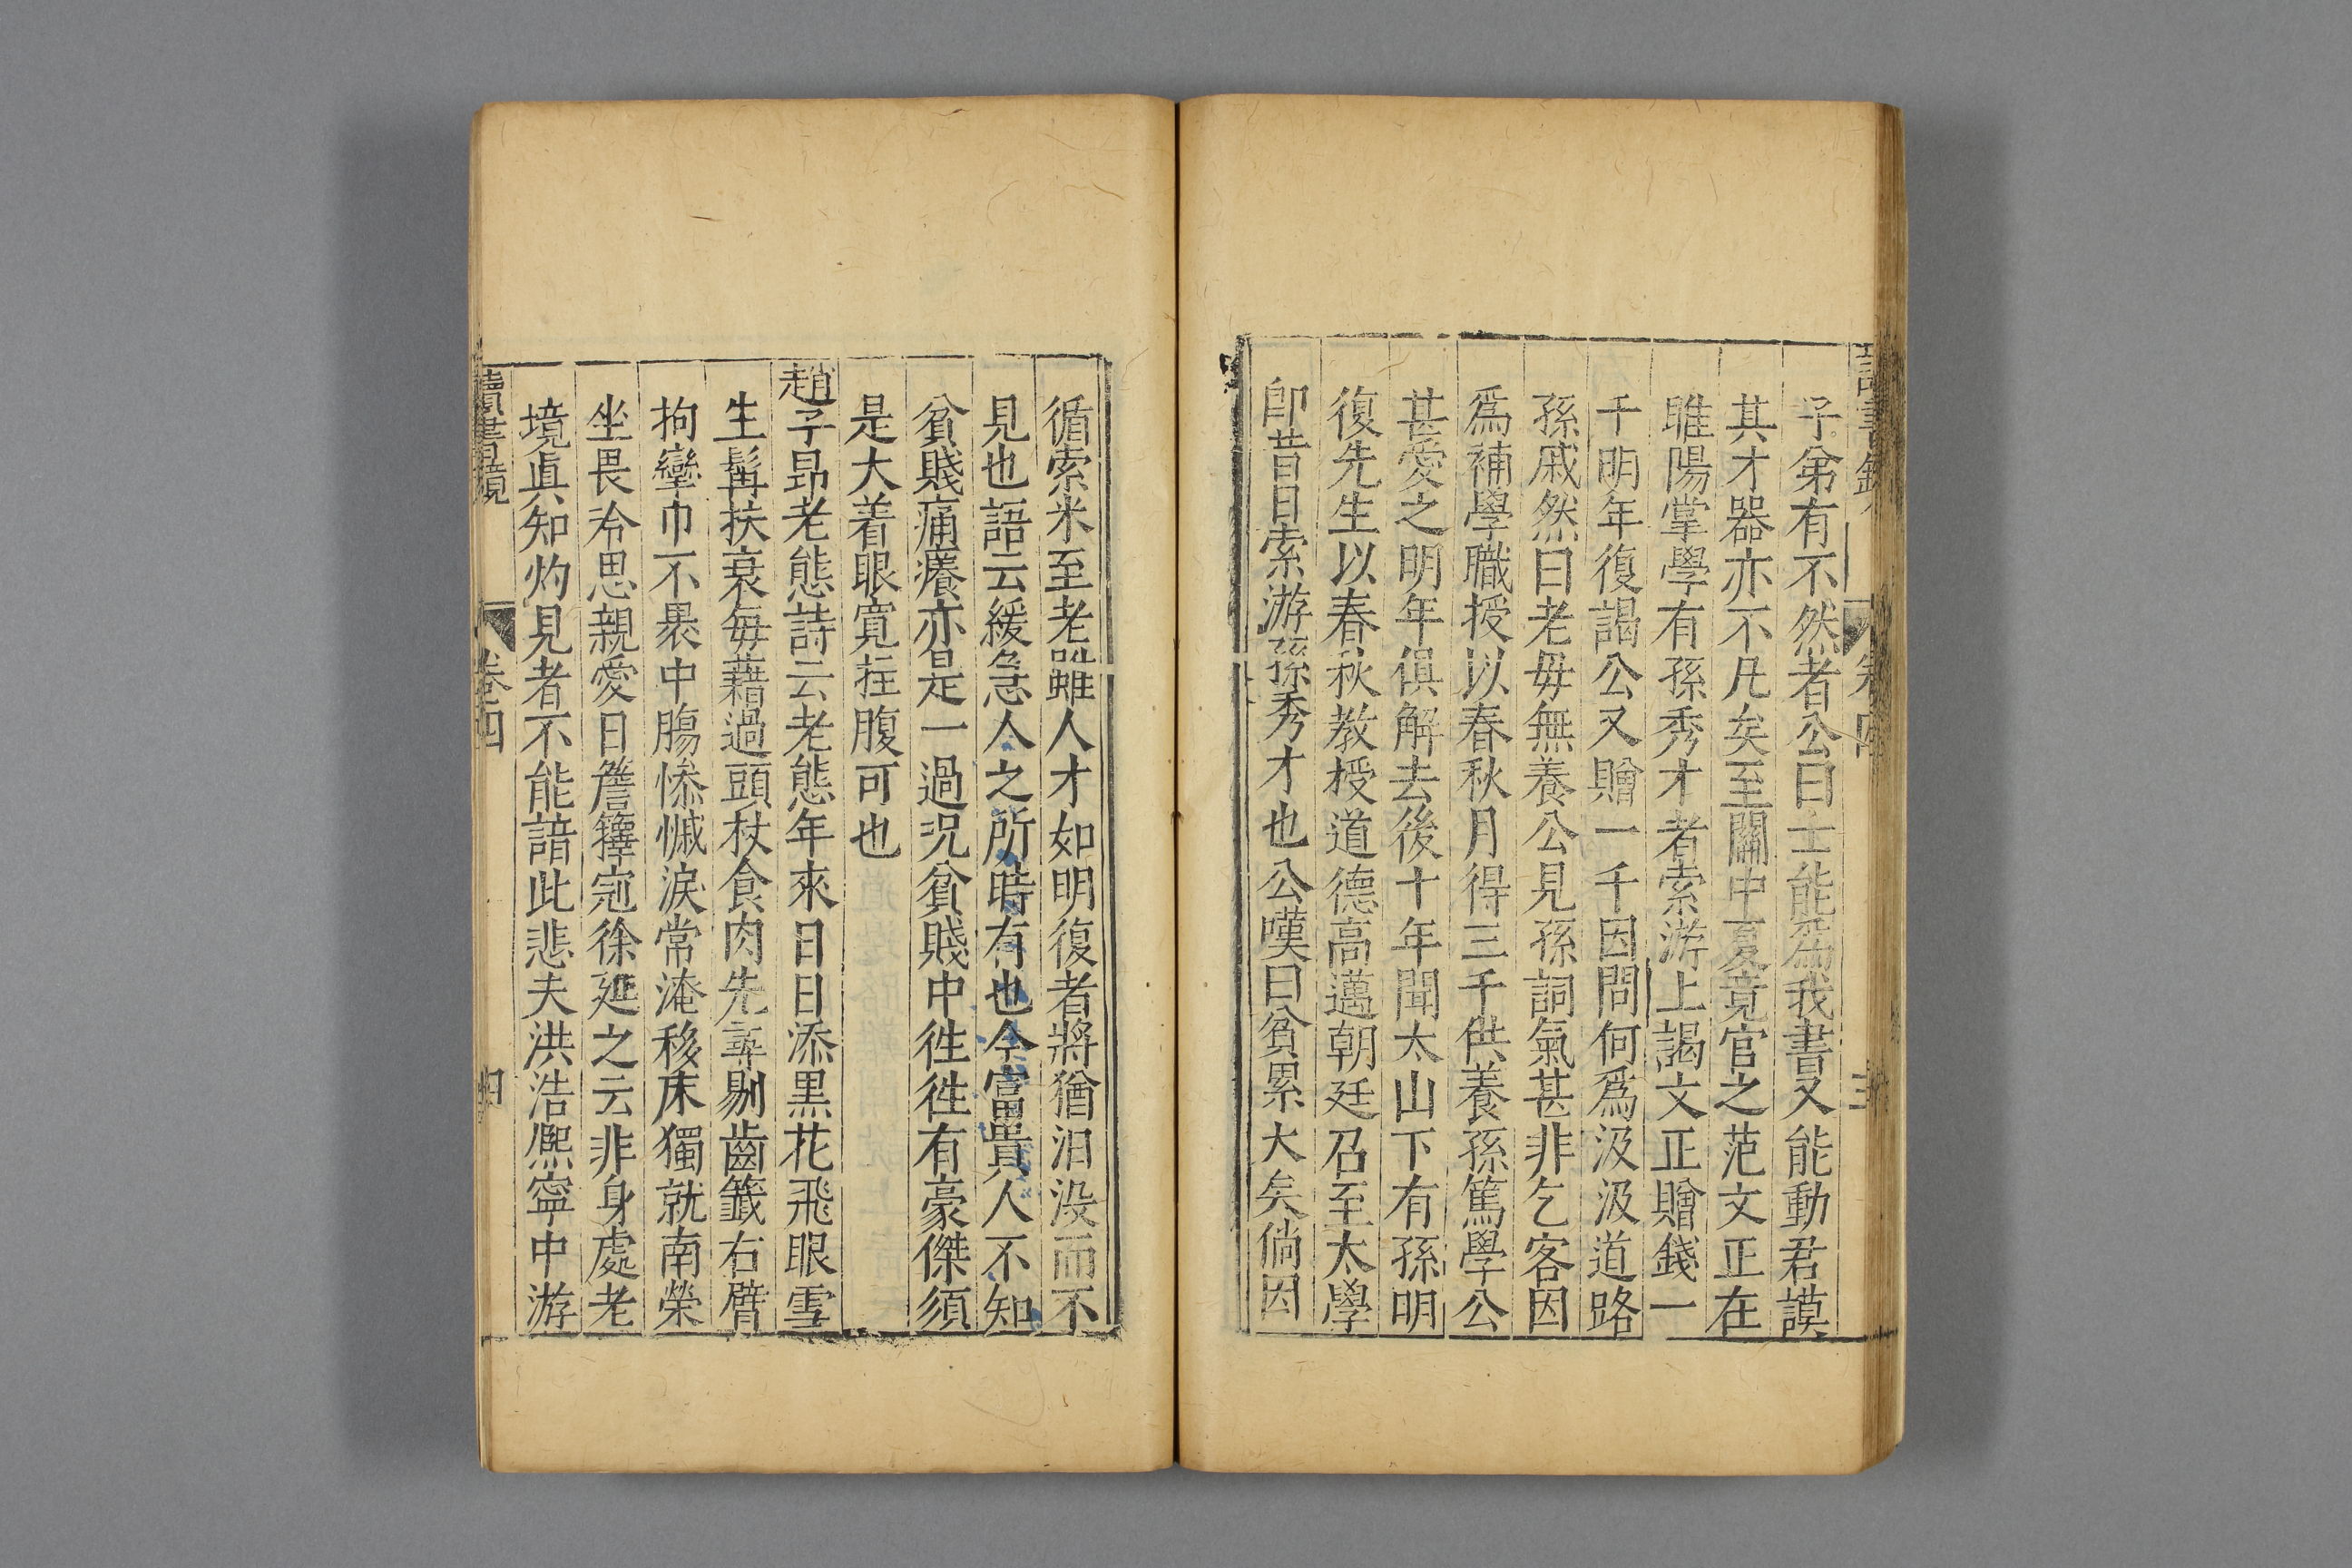 讀書鏡 卷四 三
子弟有不然者公曰士能爲我書又能動君謨
其才器亦不凡矣至關中夏竟官之范文正在
睢陽掌學有孫秀才者索游上謁文正贈錢一
千明年復謁公又贈一千因問何爲汲汲道路
孫戚然曰老母無養公見孫詞氣甚非乞客因
爲補學職授以春秋月得三千供養孫篤學公
甚愛之明年俱解去後十年聞太山下有孫明
復先生以春秋教授道德高邁朝廷召至太學
卽昔日索游孫秀才也公嘆曰貧累大矣倘因
循索米至老雖人才如明復者將猶汨没而不
見也語云緩急人之所時有也今富貴人不知
貧賤痛癢亦是一過況貧賤中徃徃有豪傑須
是大着眼寬拄腹可也
趙子昻老態詩云老態年來日日添黒花飛眼雪
生髯扶衰每藉過頭杖食肉先尋剔齒籤右臂
拘攣巾不裹中腸慘慽淚常淹移床獨就南榮
坐畏冷思親愛日簷籜寇徐延之云非身處老
境眞知灼見者不能諳此悲夫洪浩熈寧中游
讀書鏡 卷四 四